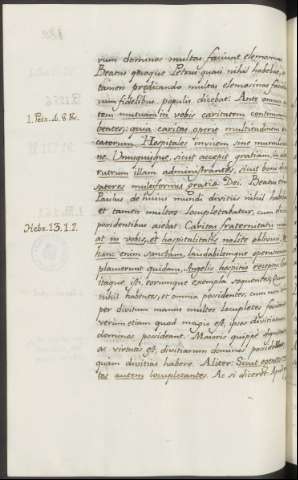 rum dominos multas faciunt elemosinas.
Beatus quoque Petrus quasi nihil habebat, et
tamen predicando multas elemosinas faciebat
cum fidelibus populis dicebat: Ante omnia
tem mutuam in vobis caritatem continuam
bentes; quia caritas operit multitudinem
1. Petr. 4. 8. &c.
catorum. Hospitales invicem sine murmura
ne. Unusquisque, sicut accepit gratiam, in al
rutrum illam administrantes, sicut boni
satores multiformis gratiæ Dei. Beatus
Paulus de huius mundi divitiis nihil habebat
et tamen multos locupletabatur, cum
possidentibus aiebat: Caritas fraternitatis ma
Hebr. 13. 1. 2.
at in vobis, et hospitalitatis nolite oblivisci
hanc enim
placuerunt quidam, Angelis hospitio receptis
itaque, et eorumque exempla sequentes,
nihil habentes, et omnia possidentes, cum non
per divitum manus multos locupletes faciunt
verum etiam quod magis est, ipsos divitiarum
dominos possideant. Maioris quippe dignitatis
ac virtutis est, divitiarum dominos possidere
quam divitias habere. Aliter: Sicut egentes
tes autem locupletantes. Ac si diceret